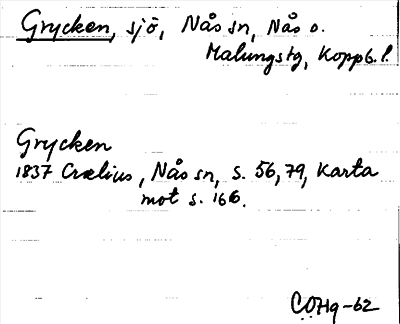 Grycken, sjö, Nås sn, Nås o.
Malungs tg, Koppb. l.
Grycken
1837 Crælius, Nås sn, s. 56, 79, Karta
mot s. 166.